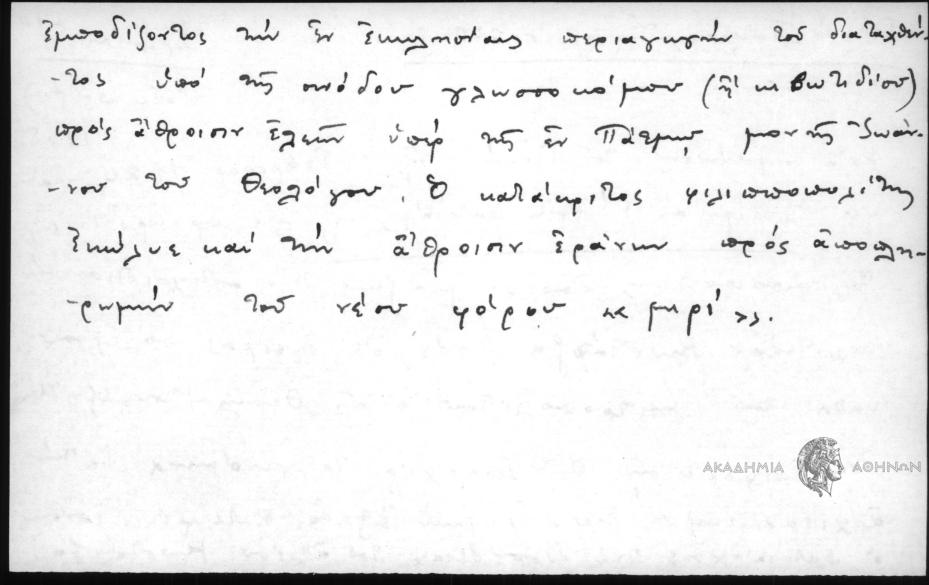 ἐμποδίζοντος τὴν ἐν ἐκκλησίαις περιαγωγὴν τοῦ διαταχθέν-
-τος ὑπὸ τῆς συνόδου γλωσσοκόμου (ἢ κιβωτιδίου)
πρὸς ἄθροισιν ἐλεῶν ὑπὲρ τῆς ἐν Πάτμῳ μονῆς Ἰωάν-
-νου τοῦ Θεολόγου. Ὁ κατάκριτος φιλιππουπολίτης
ἐκώλυε καὶ τὴν ἄθροισιν ἐράνων πρὸς ἀποπλη-
-ρωμὴν τοῦ νέου φόρου «μιρί».
ΑΚΑΔΗΜΙΑ ΑΘΗΝΩΝ